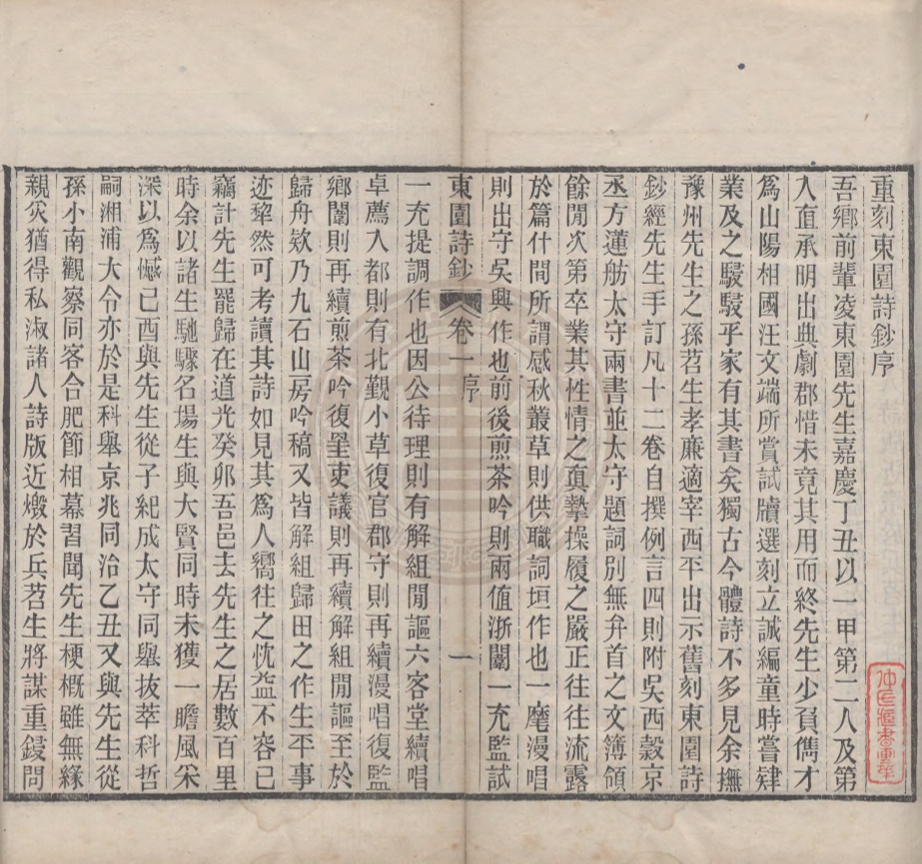 重刻東園詩鈔序
吾鄉前輩凌東園先生嘉慶丁丑以一甲第二人及第
入直承明出典劇郡惜未竟其用而終先生少負儁才
爲山陽相國汪文端所賞試牘選刻立誠編童時嘗肄
業及之駸駸乎家有其書矣獨古今體詩不多見余撫
豫州先生之孫苕生孝廉適宰西平出示舊刻東園詩
鈔經先生手訂凡十二卷自撰例言四則附吳西穀京
丞方蓮舫太守兩書並太守題詞別無弁首之文簿領
餘閒次第卒業其性情之真摯操履之嚴正往往流露
於篇什間所謂感秋叢草則供職詞垣作也一麾漫唱
則出守吳興作也前後煎茶吟則兩值浙闈一充監試
東園詩鈔 卷一 序 一
一充提調作也因公待理則有解組閒謳六客堂續唱
卓薦入都則有北覲小草復官郡守則再續漫唱復監
鄉闈則再續煎茶吟復罣吏議則再續解組閒謳至於
歸舟欸乃九石山房吟稿又皆解組歸田之作生平事
迹犂然可考讀其詩如見其爲人嚮往之忱益不容已
竊計先生罷歸在道光癸卯吾邑去先生之居數百里
時余以諸生馳驟名場生與大賢同時未獲一瞻風采
深以爲憾己酉與先生從子紀成太守同舉拔萃科哲
嗣湘浦大令亦於是科舉京兆同治乙丑又與先生從
孫小南觀察同客合肥節相幕習聞先生梗概雖無緣
親炙猶得私淑諸人詩版近燬於兵苕生將謀重鋟問